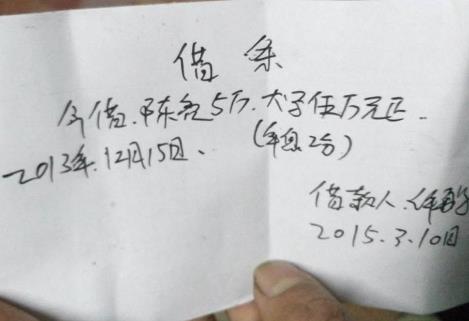 借条
今借陈亮5万.大字伍万元正.
2013年.12月15日、(年息2分)
借款人.
2015.3.10日